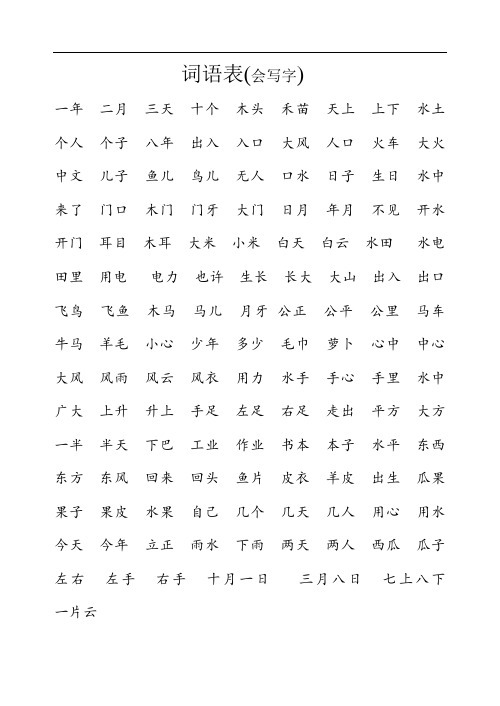 词语表(会写字)
一年 二月 三天 十个 木头 禾苗 天上 上下 水土
个人 个子 八年 出入 入口 大风 人口 火车 大火
中文 儿子 鱼儿 鸟儿 无人 口水 日子 生日 水中
来了 门口 木门 门牙 大门 日月 年月 不见 开水
开门 耳目 木耳 大米 小米 白天 白云 水田 水电
田里 用电 电力 也许 生长 长大 大山 出入 出口
飞鸟 飞鱼 木马 马儿 月牙 公正 公平 公里 马车
牛马 羊毛 小心 少年 多少 毛巾 萝卜 心中 中心
大风 风雨 风云 风衣 用力 水手 手心 手里 水中
广大 上升 升上 手足 左足 右足 走出 平方 大方
一半 半天 下巴 工业 作业 书本 本子 水平 东西
东方 东风 回来 回头 鱼片 皮衣 羊皮 出生 瓜果
果子 果皮 水果 自己 几个 几天 几人 用心 用水
今天 今年 立正 雨水 下雨 两天 两人 西瓜 瓜子
左右 左手 右手 十月一日 三月八日 七上八下
一片云